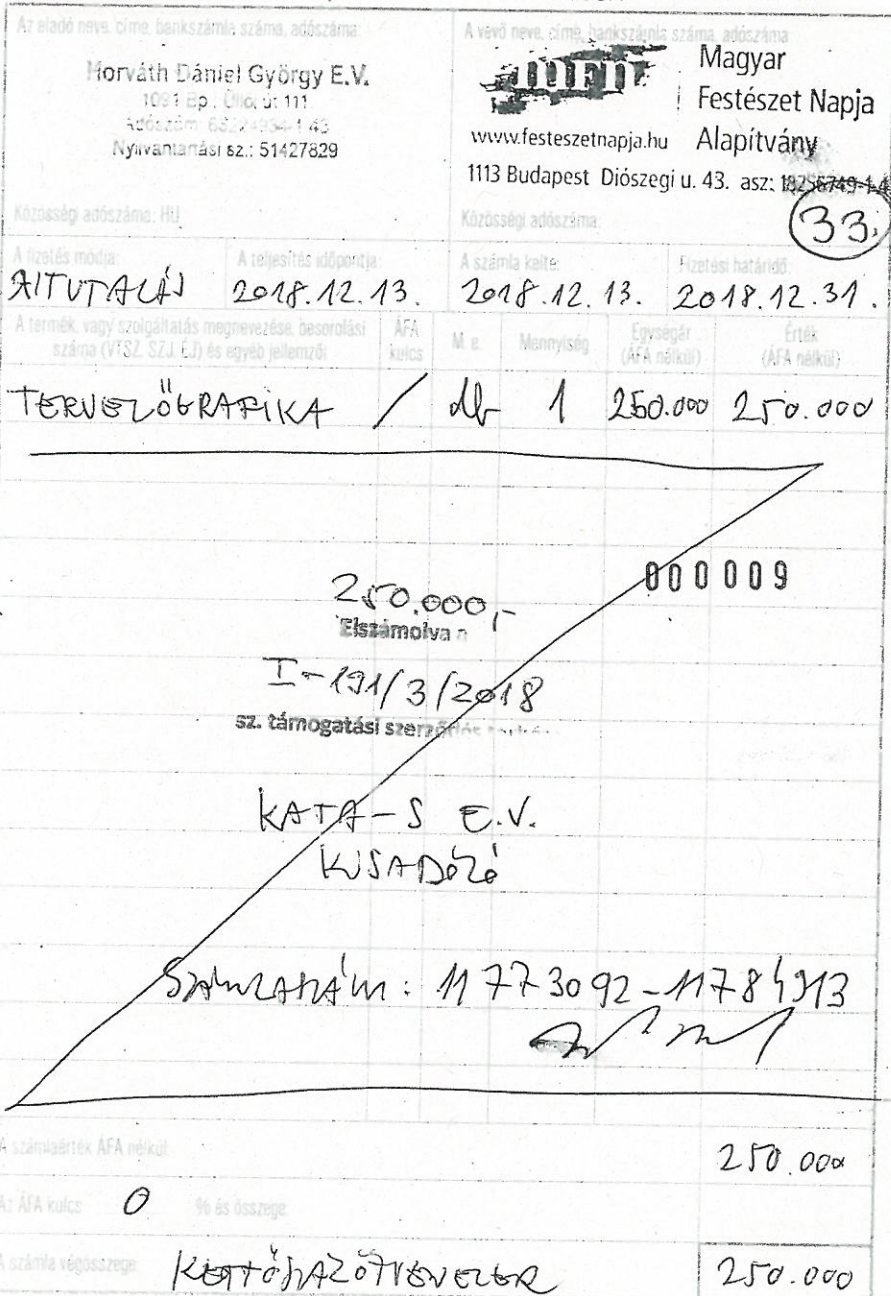 Az eladó neve, címe, bankszámla száma, adószáma:
Horváth Dániel György E.V.
1091 Bp., Üllői út 111
Adószám:
Nyilvántartási sz.: 51427829
Közösségi adószáma: HU
A vevő neve, címe, bankszámla száma, adószáma
Magyar
Festészet Napja
www.festeszetnapja.hu Alapítvány
1113 Budapest Diószegi u. 43. asz: 18256749-1-4
Közösségi adószáma:
33.
A fizetés módja: A teljesítés időpontja: A számla kelte: Fizetési határidő:
ÁTUTALÁS 2018.12.13. 2018.12.13. 2018.12.31.
A termék, vagy szolgáltatás megnevezése, besorolási száma (VTSZ, SZJ, ÉJ) és egyéb jellemzői ÁFA kulcs M. e. Mennyiség Egységár (ÁFA nélkül) Érték (ÁFA nélkül)
TERVEZŐGRAFIKA / db 1 250.000 250.000
000009
250.000,-
Elszámolva a
I-191/3/2018
sz. támogatási
KATA-S E.V.
KISADÓZÓ
SZÁMLASZÁM: 11773092-11784913
A számlaérték ÁFA nélkül: 250.000
Az ÁFA kulcs 0 % és összege:
A számla végösszege: KETTŐSZÁZÖTVENEZER 250.000